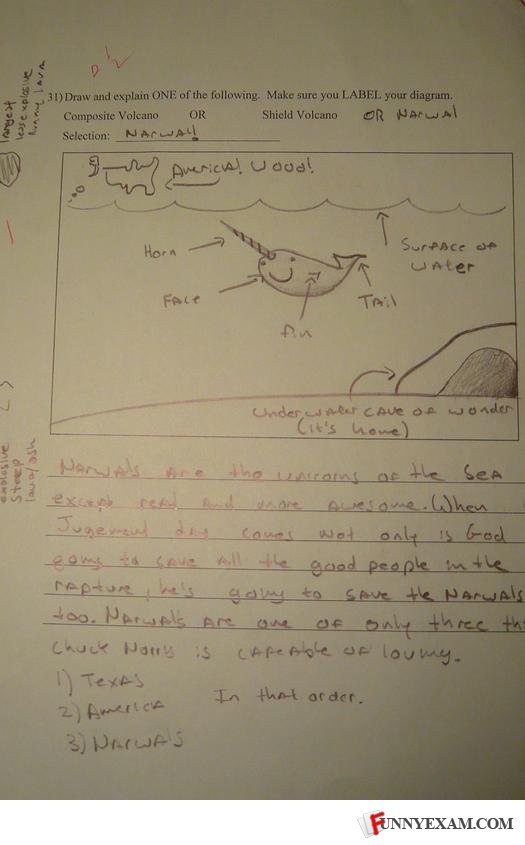 31) Draw and explain ONE of the following. Make sure you LABEL your diagram.
Composite Volcano OR Shield Volcano OR Narwal
Selection: Narwal!
America! Wooo!
Horn
Surface of
water
Face
Tail
fin
Underwater cave of wonder
(it's home)
Narwals are the unicorns of the sea
except real and more awesome. When
Jugement day comes not only is God
going to save all the good people in the
rapture, he's going to save the Narwals
too. Narwals are one of only three th
Chuck Norris is capeable of loving.
1) Texas
2) America
3) Narwals
In that order.
largest
explosive
runny lava
explosive
steep
lava/ash
FUNNYEXAM.COM